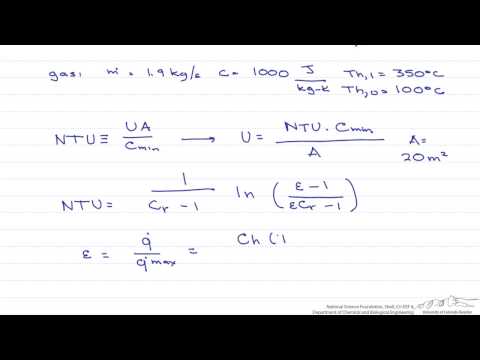 gas: ṁ = 1.9 kg/s C = 1000 J/kg-K Th,i = 350°C
Th,o = 100°C
NTU ≡ UA/Cmin → U = NTU · Cmin/A A = 20 m²
NTU = 1/(Cr - 1) ln (ε - 1/εCr - 1)
ε = q̇/q̇max = Ch (
National Science Foundation, Shell, CU EEF &
Department of Chemical and Biological Engineering
University of Colorado Boulder